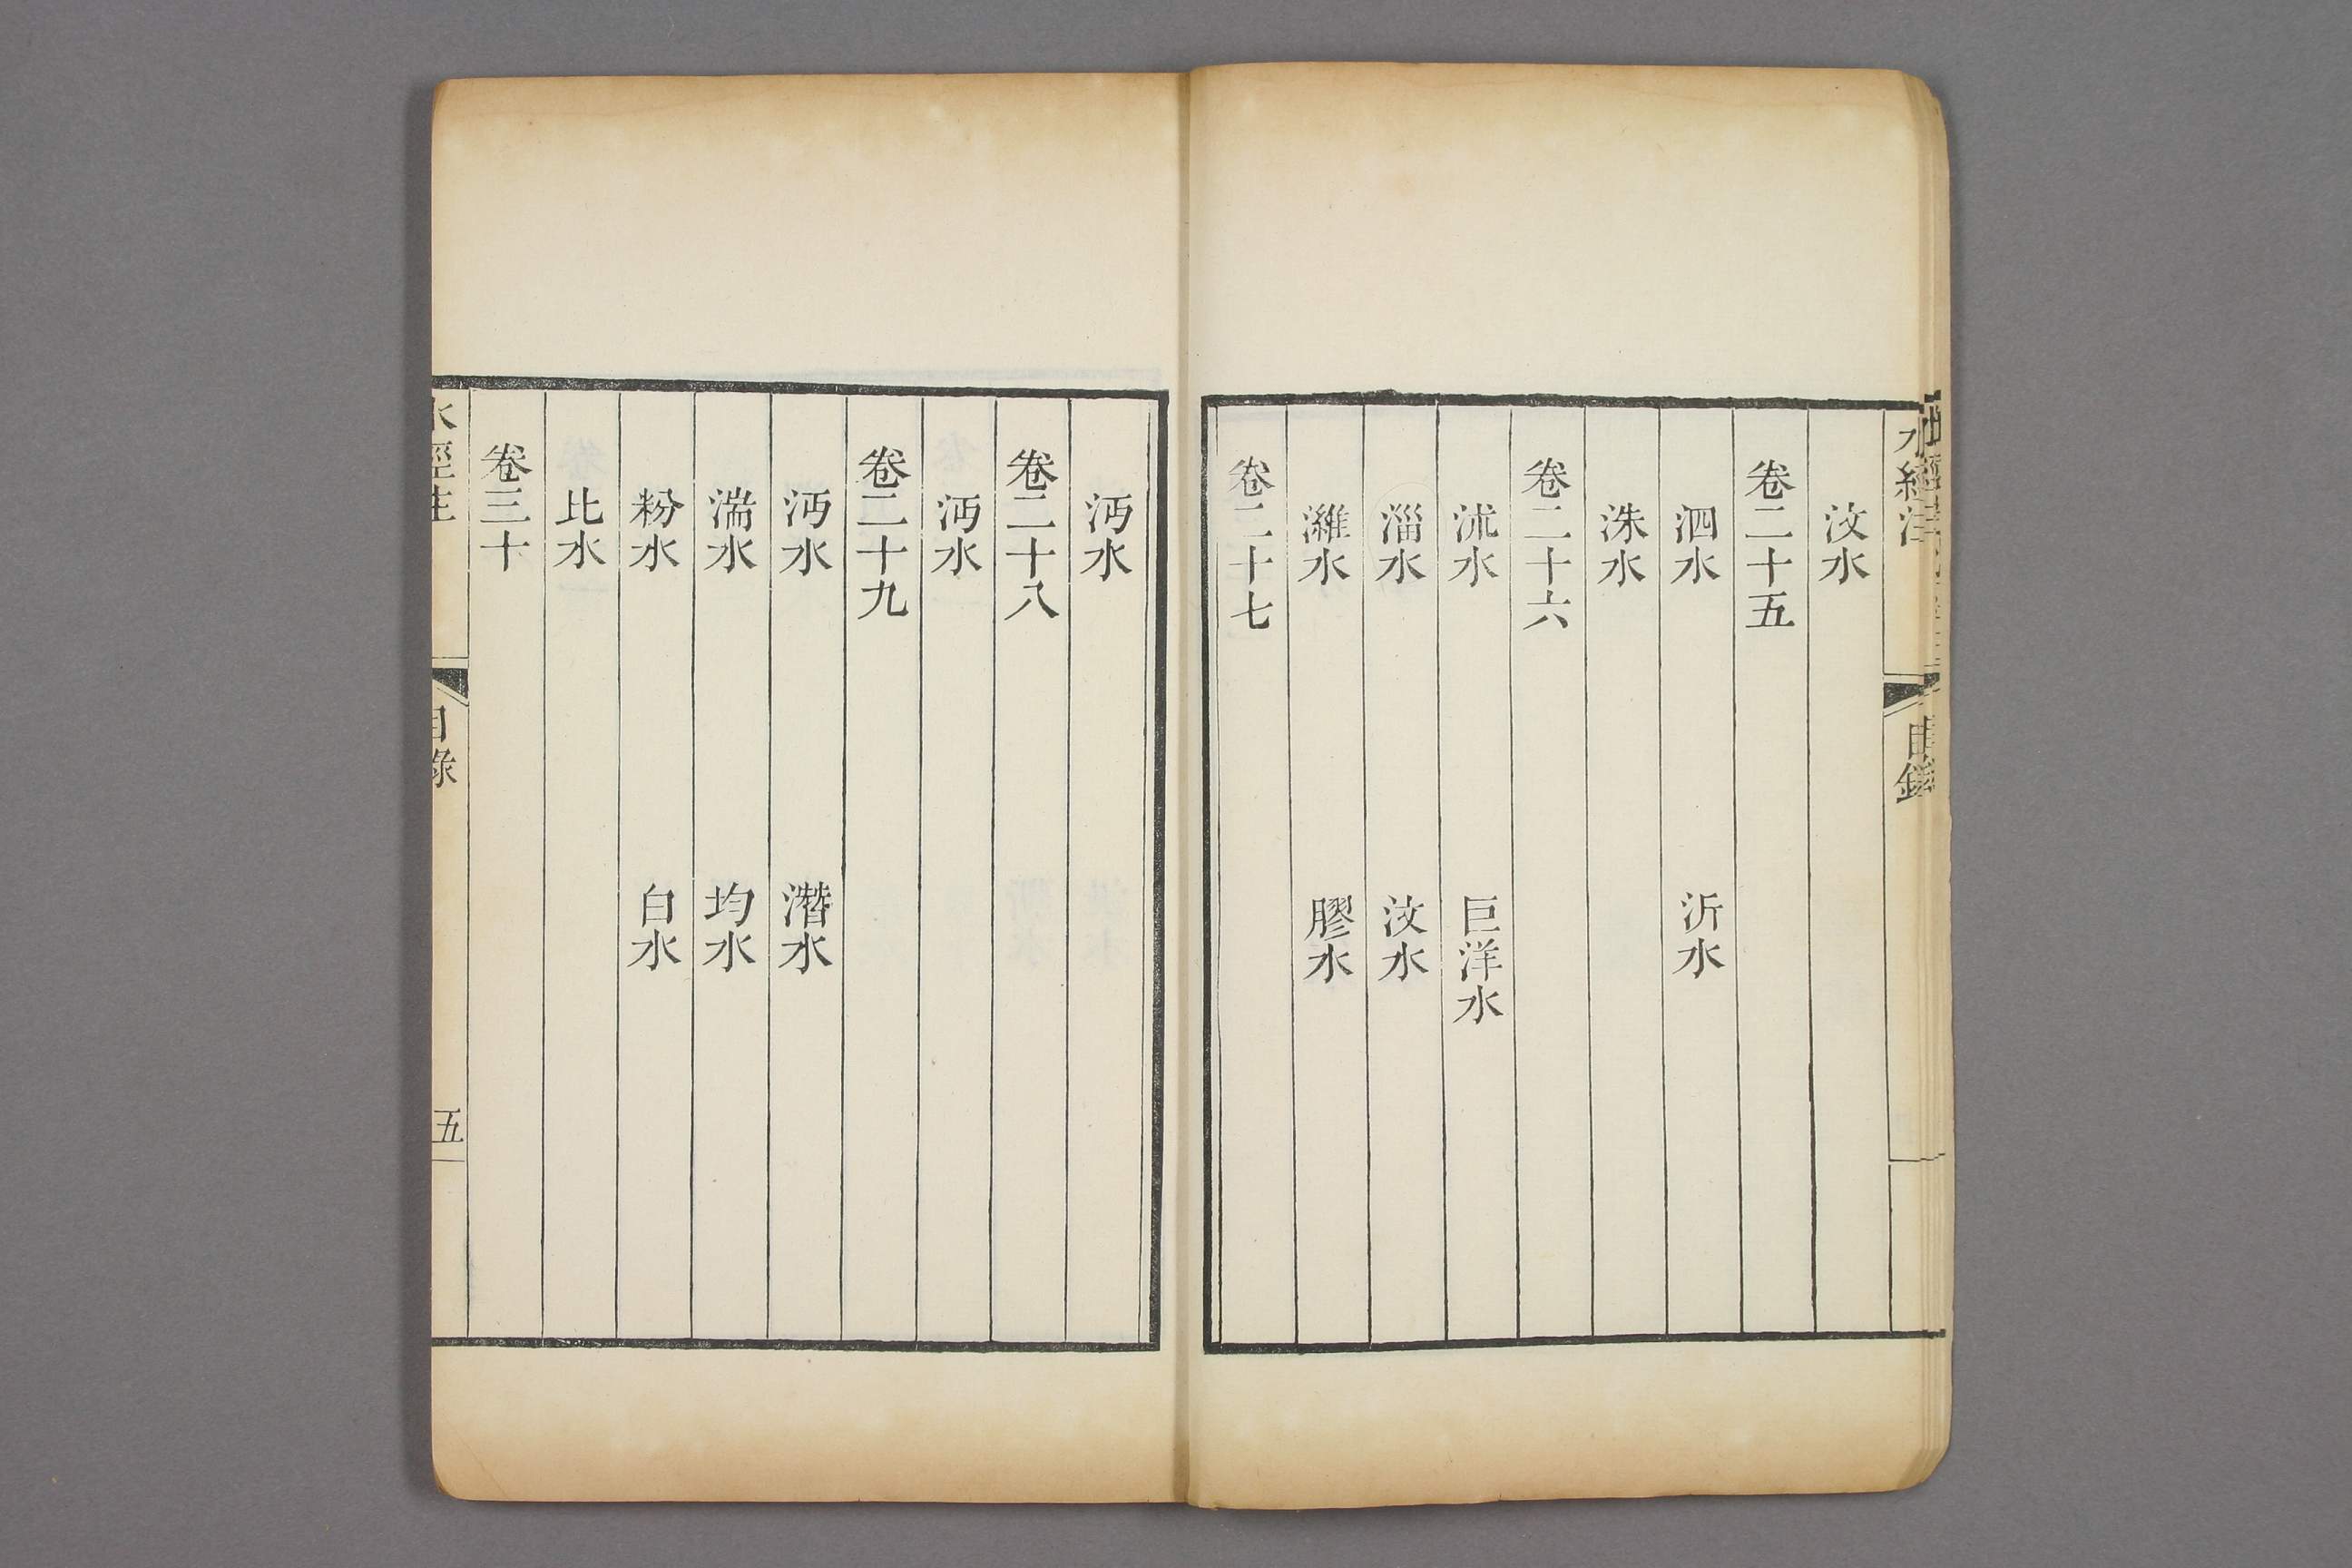 水經注
目錄
汶水
卷二十五
泗水 沂水
洙水
卷二十六
沭水 巨洋水
淄水 汶水
濰水 膠水
卷二十七
沔水
卷二十八
沔水
卷二十九
沔水 潛水
湍水 均水
粉水 白水
比水
卷三十
水經注
目錄
五